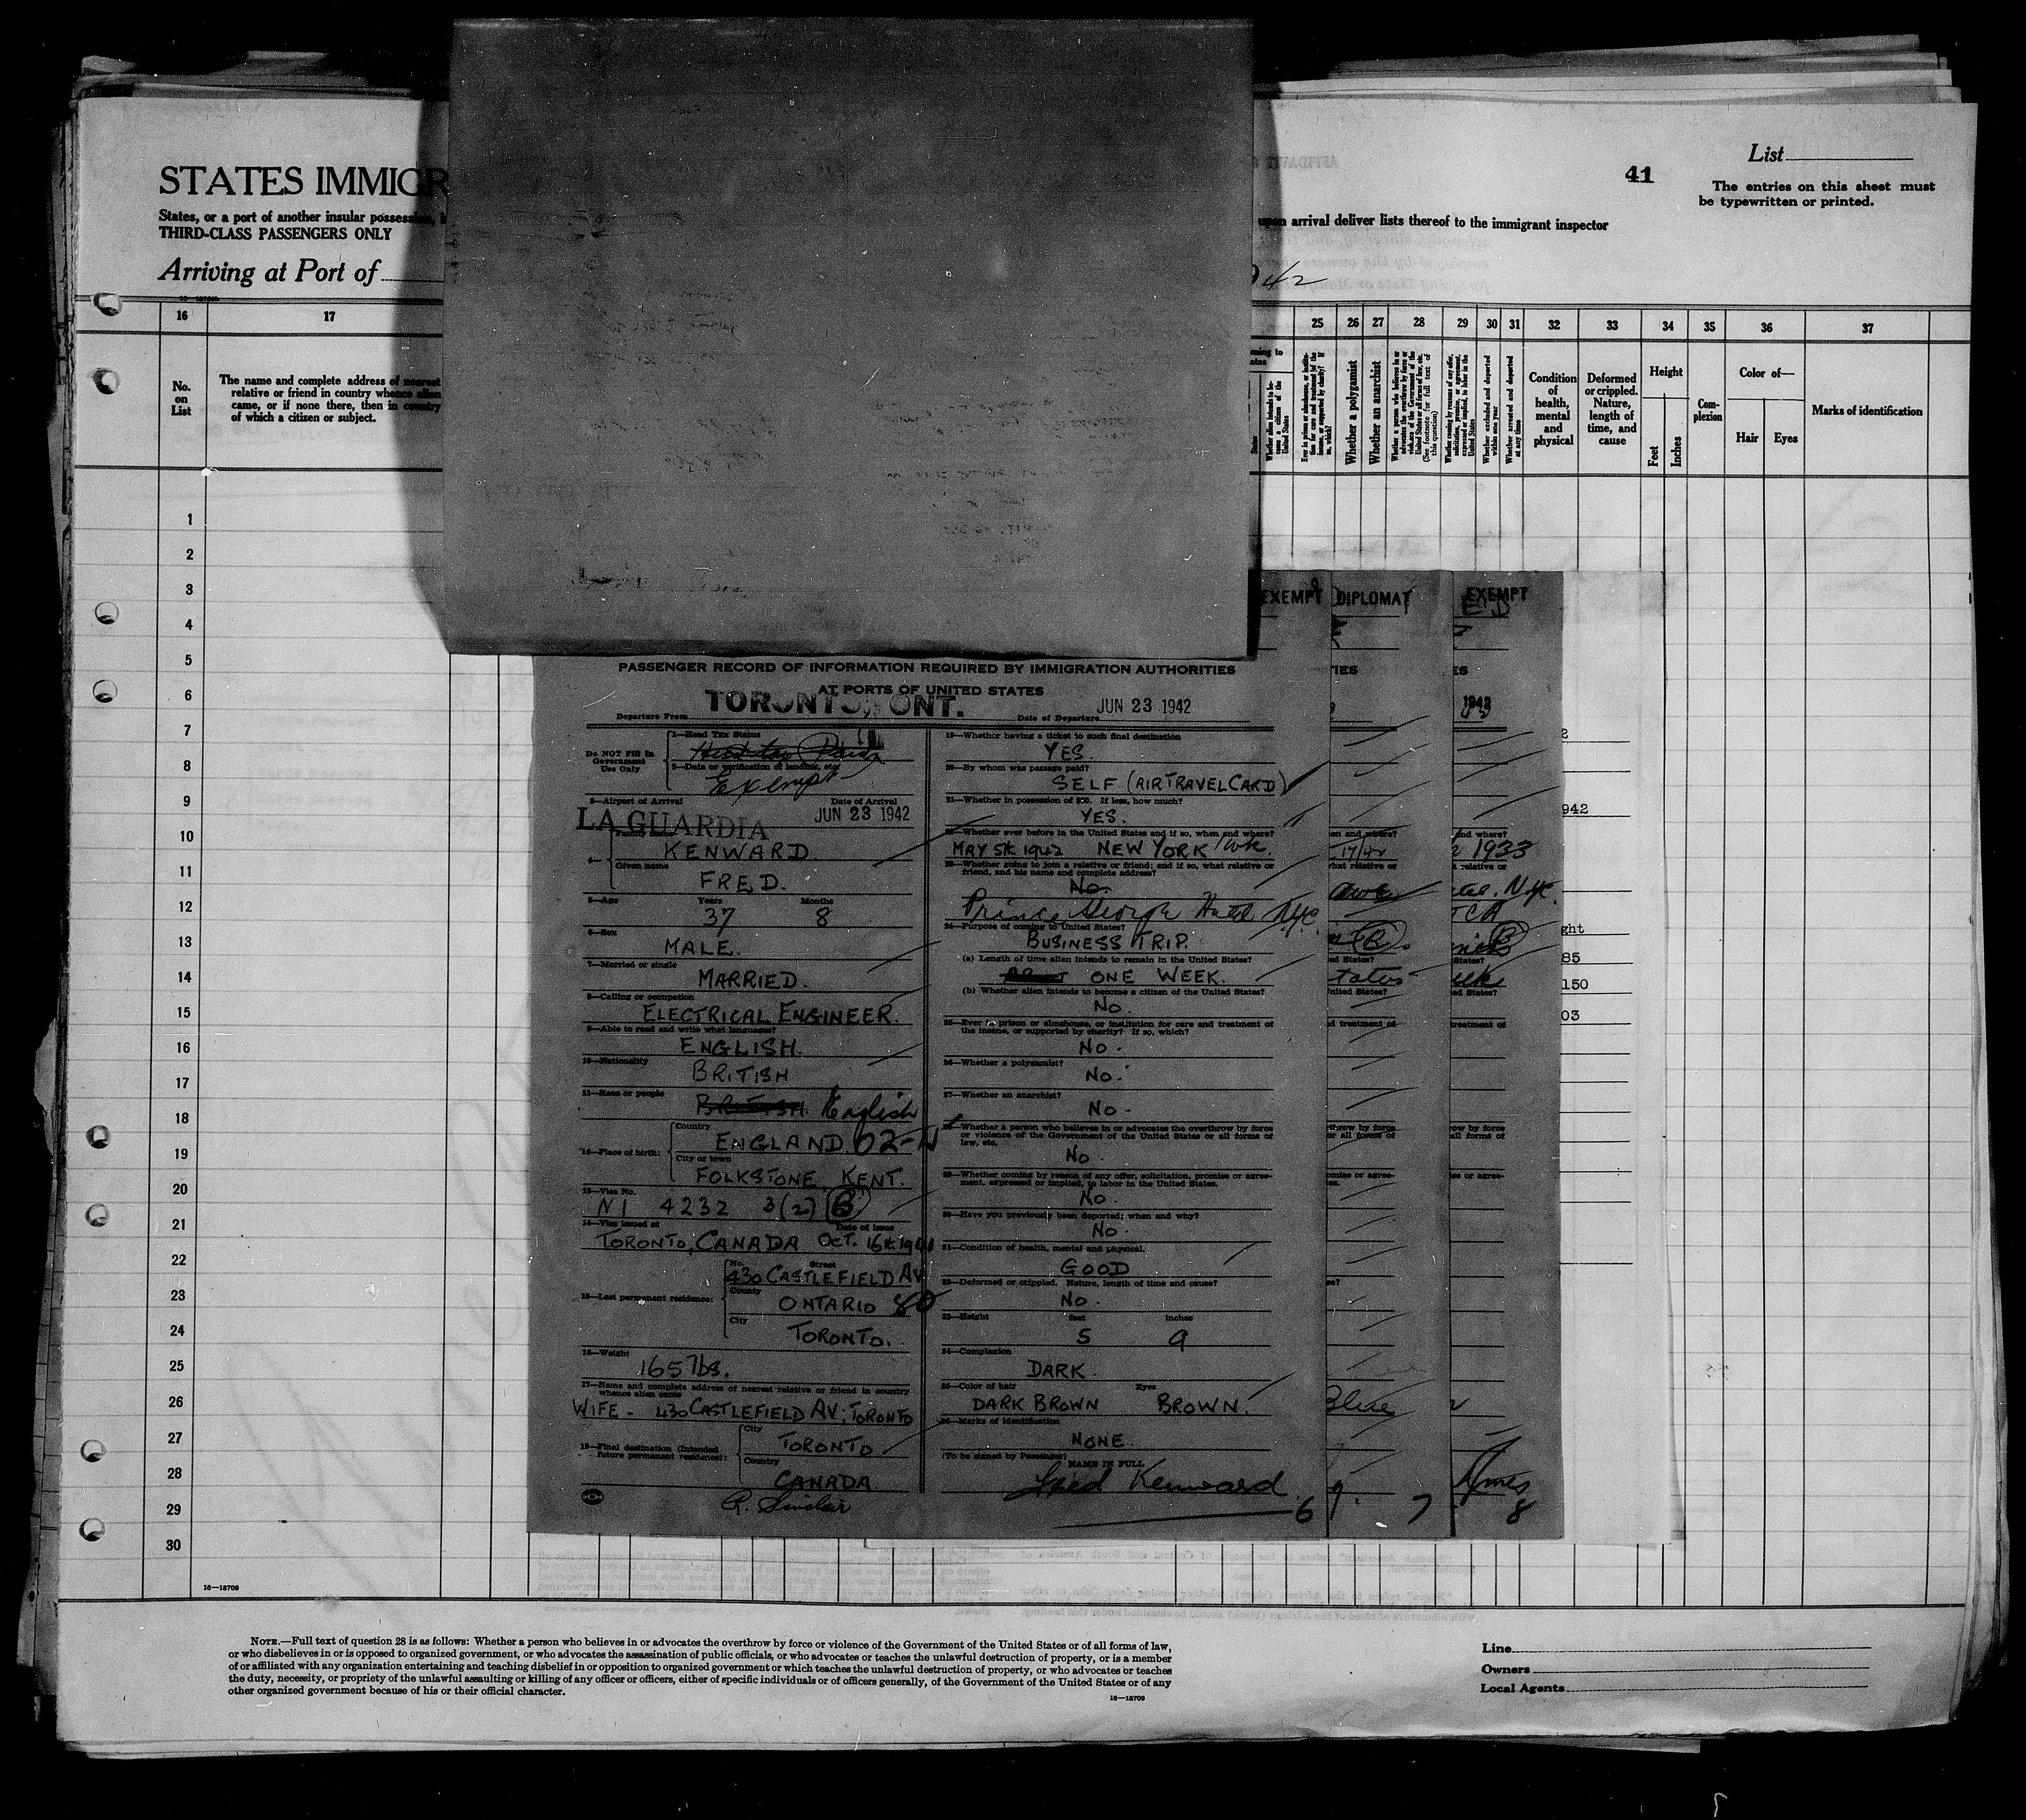 List
41
The entries on this sheet must
be typewritten or printed.
STATES IMMIGR
States, or a port of another insular possession,
upon arrival deliver lists thereof to the immigrant inspector
THIRD-CLASS PASSENGERS ONLY
Arriving at Port of
42
16 17 25 26 27 28 29 30 31 32 33 34 35 36 37
No. on List
The name and complete address of nearest
relative or friend in country whence alien
came, or if none there, then in country
of which a citizen or subject.
Whether alien intends to become a citizen of the United States
Whether a polygamist
Whether an anarchist
Whether excluded and deported within one year
Whether arrested and deported at any time
Condition of health, mental and physical
Deformed or crippled. Nature, length of time, and cause
Height
Feet Inches
Complexion
Color of—
Hair Eyes
Marks of identification
1
2
3
4
5
6
7
8
9
10
11
12
13
14
15
16
17
18
19
20
21
22
23
24
25
26
27
28
29
30
16—18709
EXEMPT DIPLOMAT EXEMPT
PASSENGER RECORD OF INFORMATION REQUIRED BY IMMIGRATION AUTHORITIES
AT PORTS OF UNITED STATES
Departure From TORONTO, ONT. Date of Departure JUN 23 1942
Do NOT Fill In Government Use Only
1—Head Tax Status
Head tax Paid
2—Data or verification of landing, etc.
Exempt
3—Airport of Arrival Date of Arrival
LA GUARDIA JUN 23 1942
4— Family name
KENWARD
Given name
FRED.
5—Age Years Months
37 8
6—Sex
MALE.
7—Married or single
MARRIED.
8—Calling or occupation
ELECTRICAL ENGINEER.
9—Able to read and write what languages?
ENGLISH.
10—Nationality
BRITISH
11—Race or people
BRITISH. English
12—Place of birth: Country
ENGLAND. 02-N
City or town
FOLKSTONE KENT.
13—Visa No.
N1 4232 3(2) B
14—Visa issued at Date of Issue
TORONTO, CANADA OCT. 16th 1941
15—Last permanent residence: No. Street
430 CASTLEFIELD AV.
County
ONTARIO 80
City
TORONTO.
16—Weight
165 lbs.
17—Name and complete address of nearest relative or friend in country
whence alien came
WIFE - 430 CASTLEFIELD AV; TORONTO
18—Final destination (Intended future permanent residence): City
TORONTO
Country
CANADA.
R. Sinclair
19—Whether having a ticket to such final destination
YES.
20—By whom was passage paid?
SELF (AIR TRAVEL CARD)
21—Whether in possession of $50. If less, how much?
YES.
22—Whether ever before in the United States and if so, when and where?
MAY 5th 1942 NEW YORK 1 wk.
23—Whether going to join a relative or friend; and if so, what relative or
friend, and his name and complete address?
No.
Prince George Hotel NYC
24—Purpose of coming to United States?
BUSINESS TRIP.
(a) Length of time alien intends to remain in the United States?
ONE WEEK.
(b) Whether alien intends to become a citizen of the United States?
No.
25—Ever in prison or almshouse, or institution for care and treatment of
the insane, or supported by charity? If so, which?
No.
26—Whether a polygamist?
No.
27—Whether an anarchist?
No.
28—Whether a person who believes in or advocates the overthrow by force
or violence of the Government of the United States or all forms of
law, etc.
No.
29—Whether coming by reason of any offer, solicitation, promise or agree-
ment, expressed or implied, to labor in the United States.
No.
30—Have you previously been deported; when and why?
No.
31—Condition of health, mental and physical.
GOOD
32—Deformed or crippled. Nature, length of time and cause?
No.
33—Height feet inches
5 9
34—Complexion
DARK.
35—Color of hair Eyes
DARK BROWN BROWN.
36—Marks of identification
NONE.
(To be signed by Passenger) NAME IN FULL
Fred Kenward
6 7 8
1942
1933
Blue
Ames
NOTE.—Full text of question 28 is as follows: Whether a person who believes in or advocates the overthrow by force or violence of the Government of the United States or of all forms of law,
or who disbelieves in or is opposed to organized government, or who advocates the assassination of public officials, or who advocates or teaches the unlawful destruction of property, or is a member
of or affiliated with any organization entertaining and teaching disbelief in or opposition to organized government or which teaches the unlawful destruction of property, or who advocates or teaches
the duty, necessity, or propriety of the unlawful assaulting or killing of any officer or officers, either of specific individuals or of officers generally, of the Government of the United States or of any
other organized government because of his or their official character.
16—18709
Line
Owners
Local Agents